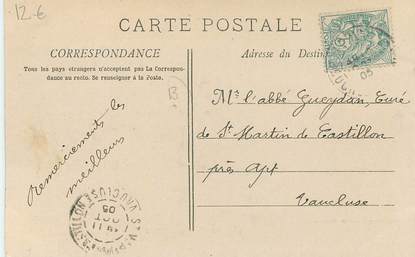 12-€
CARTE POSTALE
CORRESPONDANCE
Tous les pays étrangers n'acceptent pas La Correspon-
dance au recto. Se renseigner à la Poste.
Adresse du Destin
B
Remerciements les
meilleurs
Mr l'abbé Gueydan, Curé
de St Martin de Castillon
près Apt
Vaucluse
VAUCLUSE
11
OCT
05
05